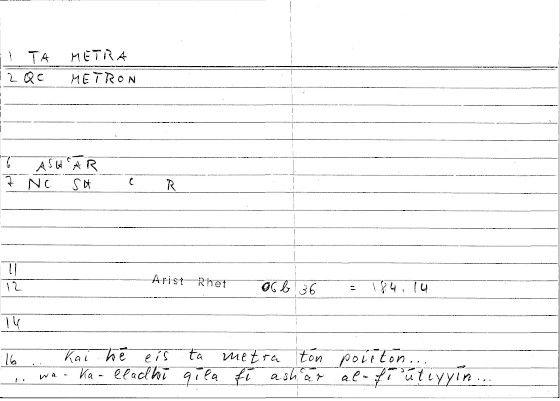 1 TA METRA
2 QC METRON
6 ASHʿĀR
7 NC SH ʿ R
11
12 Arist Rhet 06b 36 = 184.14
14
16 .. Kai hē eis ta metra tōn poiētōn...
.. wa-ka-lladhī qīla fī ashʿār al-fīʾūtiyyīn...